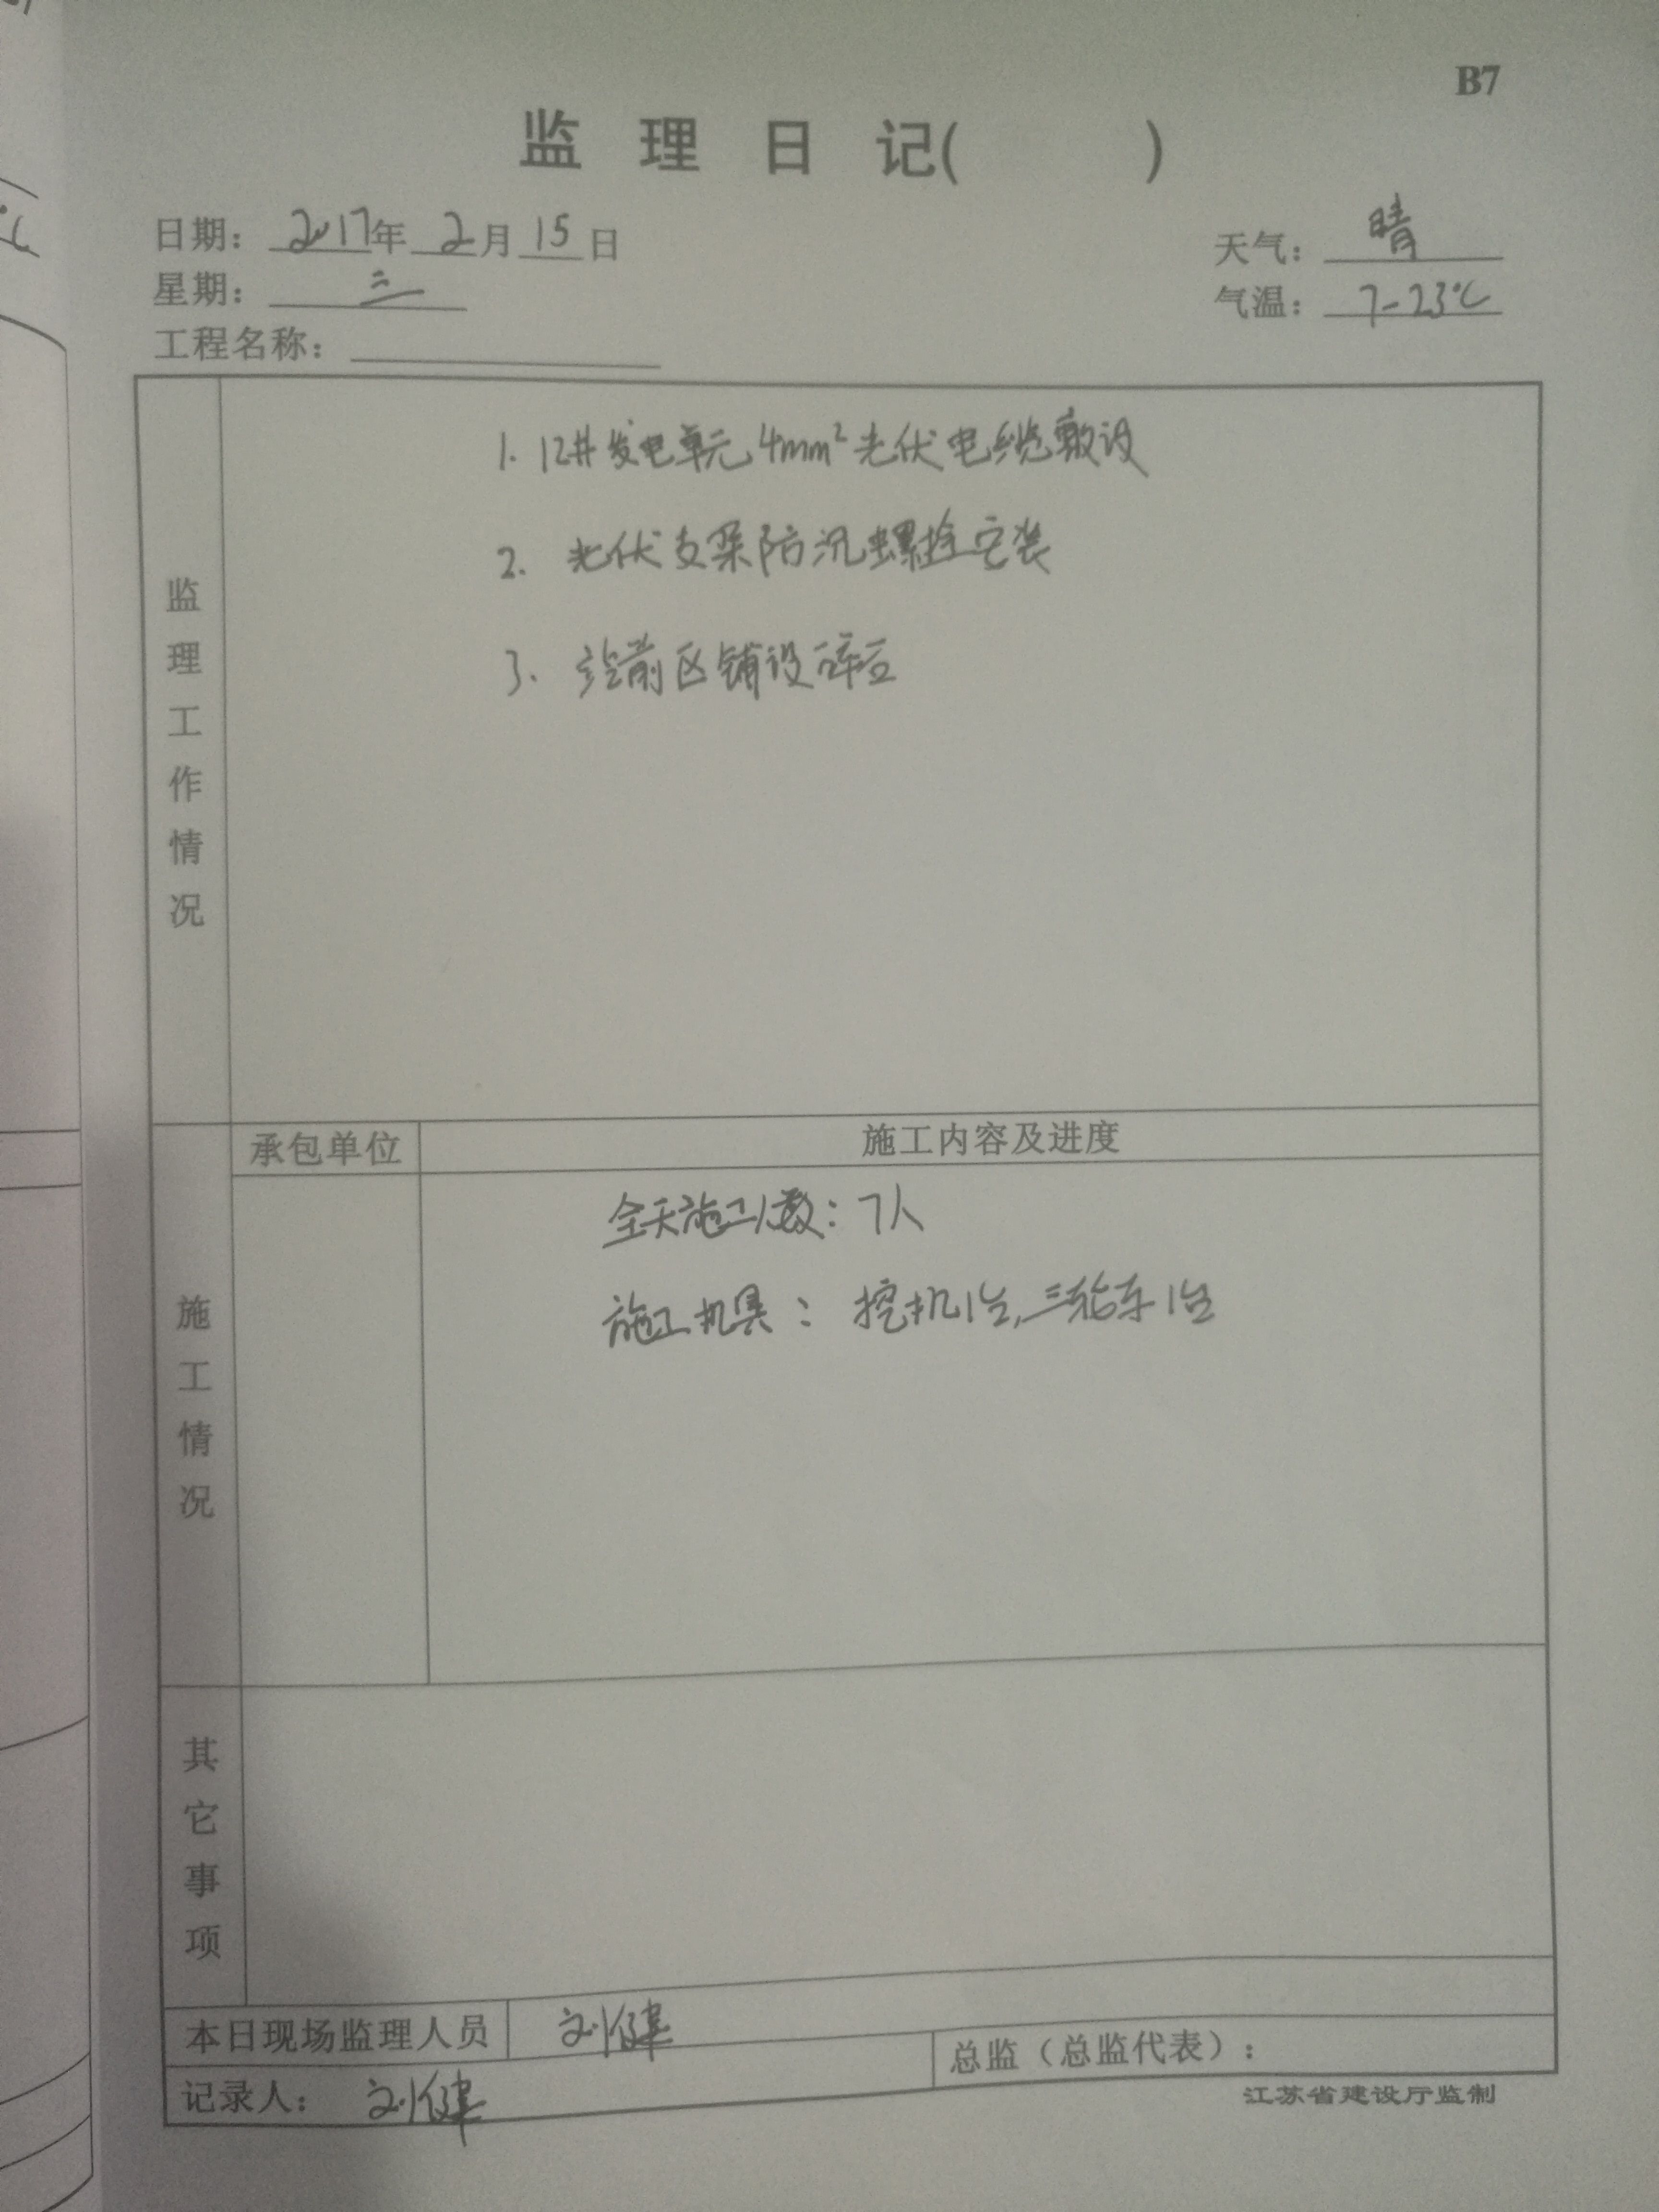 B7
监理日记(　　)
日期：2017年2月15日
天气：晴
星期：三
气温：7-23℃
工程名称：
监理工作情况
1. 12#发电单元4mm²光伏电缆敷设
2. 光伏支架防沉螺栓安装
3. 站前区铺设碎石
承包单位
施工内容及进度
施工情况
全天施工人数：7人
施工机具：挖机1台,三轮车1台
其它事项
本日现场监理人员 刘健
总监（总监代表）：
记录人：刘健
江苏省建设厅监制